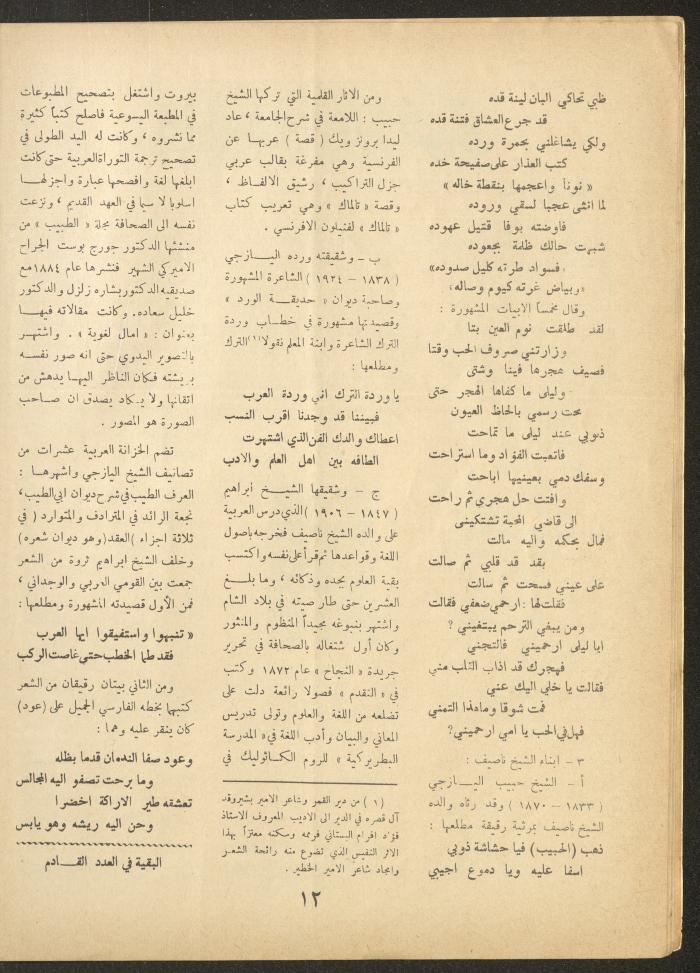 ظبي تحاكي البان لينة قده
قد جرع العشاق فتنة قده
ولكي يشاغلني بحمرة ورده
كتب العذار على صفيحة خده
« نوناً واعجمها بنقطة خاله »
لما انثنى عجبا لسقي وروده
فاوضته بوفا قتيل عهوده
شبهت حالك ظلمة بجعوده
فسواد طرته كليل صدوده»
«وبياض غرته كيوم وصاله»
وقال مخمساً الابيات المشهورة :
لقد طلقت نوم العين بتا
وزارتني صروف الحب وقتا
فصيف هجرها فينا وشتى
وليلى ما كفاها الهجر حتى
محت رسمي بالحاظ العيون
ذنوبي عند ليلى ما تماحت
فاتعبت الفؤاد وما استراحت
وسفك دمي بعينيها اباحت
وافتت حل هجري ثم راحت
الى قاضي المحبة تشتكيني
فمال بحكمه واليه مالت
بقد قد قلبي ثم صالت
على عيني فسحت ثم سالت
فقلت لها : ارحمي ضعفي فقالت
ومن يبغي الترحم يبتغيني ?
ايا ليلى ارحميني فالتجني
فهجرك قد اذاب القلب مني
فقالت يا خلي اليك عني
فمت شوقا وما هذا التمني
فهل في الحب يا امي ارحميني?
٣ - ابناء الشيخ ناصيف :
أ - الشيخ حبيب اليـــازجي
( ١٨٣٣ - ١٨٧٠ ) وقد رثاه والده
الشيخ ناصيف بمرثية رقيقة مطلعها :
ذهب (الحبيب) فيا حشاشة ذوبي
اسفا عليه ويا دموع اجيبي
ومن الآثار القلمية التي تركها الشيخ
حبيب : اللامعة في شرح الجامعة ، عاد
ليدا برونز ويك ( قصة ) عربها عن
الفرنسية وهي مفرغة بقالب عربي
جزل التراكيب ، رشيق الالفاظ ،
وقصة « تالماك » وهي تعريب كتاب
« تالماك » لفنيلون الافرنسي .
ب - وشقيقته ورده اليــازجي
( ١٨٣٨ - ١٩٢٤ ) الشاعرة المشهورة
وصاحبة ديوان « حديقــة الورد »
وقصيدتها مشهورة في خطــاب وردة
الترك الشاعرة وابنة المعلم نقولا(١) الترك
ومطلعها :
يا وردة الترك اني وردة العرب
فبيننا قد وجدنا اقرب النسب
اعطاك والدك الفن الذي اشتهرت
الطافه بين اهل العلم والادب
ج - وشقيقها الشيـــخ ابراهيم
( ١٨٤٧ - ١٩٠٦ ) الذي درس العربية
على والده الشيخ ناصيف فخرجه باصول
اللغة وقواعدها ثم قرأ على نفسه واكتسب
بقية العلوم بجده وذكائه ، وما بلــغ
العشرين حتى طار صيته في بلاد الشام
واشتهر بنبوغه مجيداً المنظوم والمنثور
وكان أول شتغاله بالصحافة في تحرير
جريدة « النجاح » عام ١٨٧٢ وكتب
في « التقدم » فصولا رائعة دلت على
تضلعه من اللغة والعلوم وتولى تدريس
المعاني والبيان وأدب اللغة في« المدرسة
البطريركية » للروم الكــاثوليك في
( ١ ) من دير القمر وشاعر الامير بشير وقد
آل قصره في الدير الى الاديب المعروف الاستاذ
فؤاد افرام البستاني فرممه وسكنه معتزاً بهذا
الاثر النفيس الذي تضوع منه رائحة الشعر
وامجاد شاعر الامير الخطير .
بيروت واشتغل بتصحيح المطبوعات
في المطبعة اليسوعية فاصلح كتباً كثيرة
مما نشروه ، وكانت له اليد الطولى في
تصحيح ترجمة التوراة العربية حتى كانت
ابلغها لغة وافصحها عبارة واجزلهــا
اسلوبا لا سيما في العهد القديم ، ونزعت
نفسه الى الصحافة مجلة « الطبيب » من
منشئها الدكتور جورج بوست الجراح
الاميركي الشهير فنشرها عام ١٨٨٤ مع
صديقيه الدكتور بشاره زلزل والدكتور
خليل سعاده. وكانت مقالاته فيهــا
بعنوان : « امال لغوية » . واشتهــر
بالتصوير اليدوي حتى انه صور نفسـه
بريشته فكان الناظر اليهــا يدهش من
اتقانها ولا يكــاد يصدق ان صــاحب
الصورة هو المصور .
تضم الخزانة العربية عشــرات من
تصانيف الشيخ اليازجي واشهرهــا :
العرف الطيب في شرح ديوان ابي الطيب،
نجعة الرائد في المترادف والمتوارد ( في
ثلاثة اجزاء ) العقد (وهو ديوان شعره)
وخلف الشيخ ابراهيم ثروة من الشعر
جمعت بين القومي العربي والوجداني ،
فمن الأول قصيدته المشهورة ومطلعها :
« تنبهوا واستفيقوا ايها العرب
فقد طما الخطب حتى غاصت الركب
ومن الثاني بيتان رقيقان من الشعر
كتبها بخطه الفارسي الجميل على (عود)
كان ينقر عليه وهما :
وعود صفا الندمان قدما بظله
وما برحت تصفو اليه المجالس
تعشقه طير الاراكة اخضرا
وحن اليه ريشه وهو يابس
البقية في العدد القـــادم
١٢